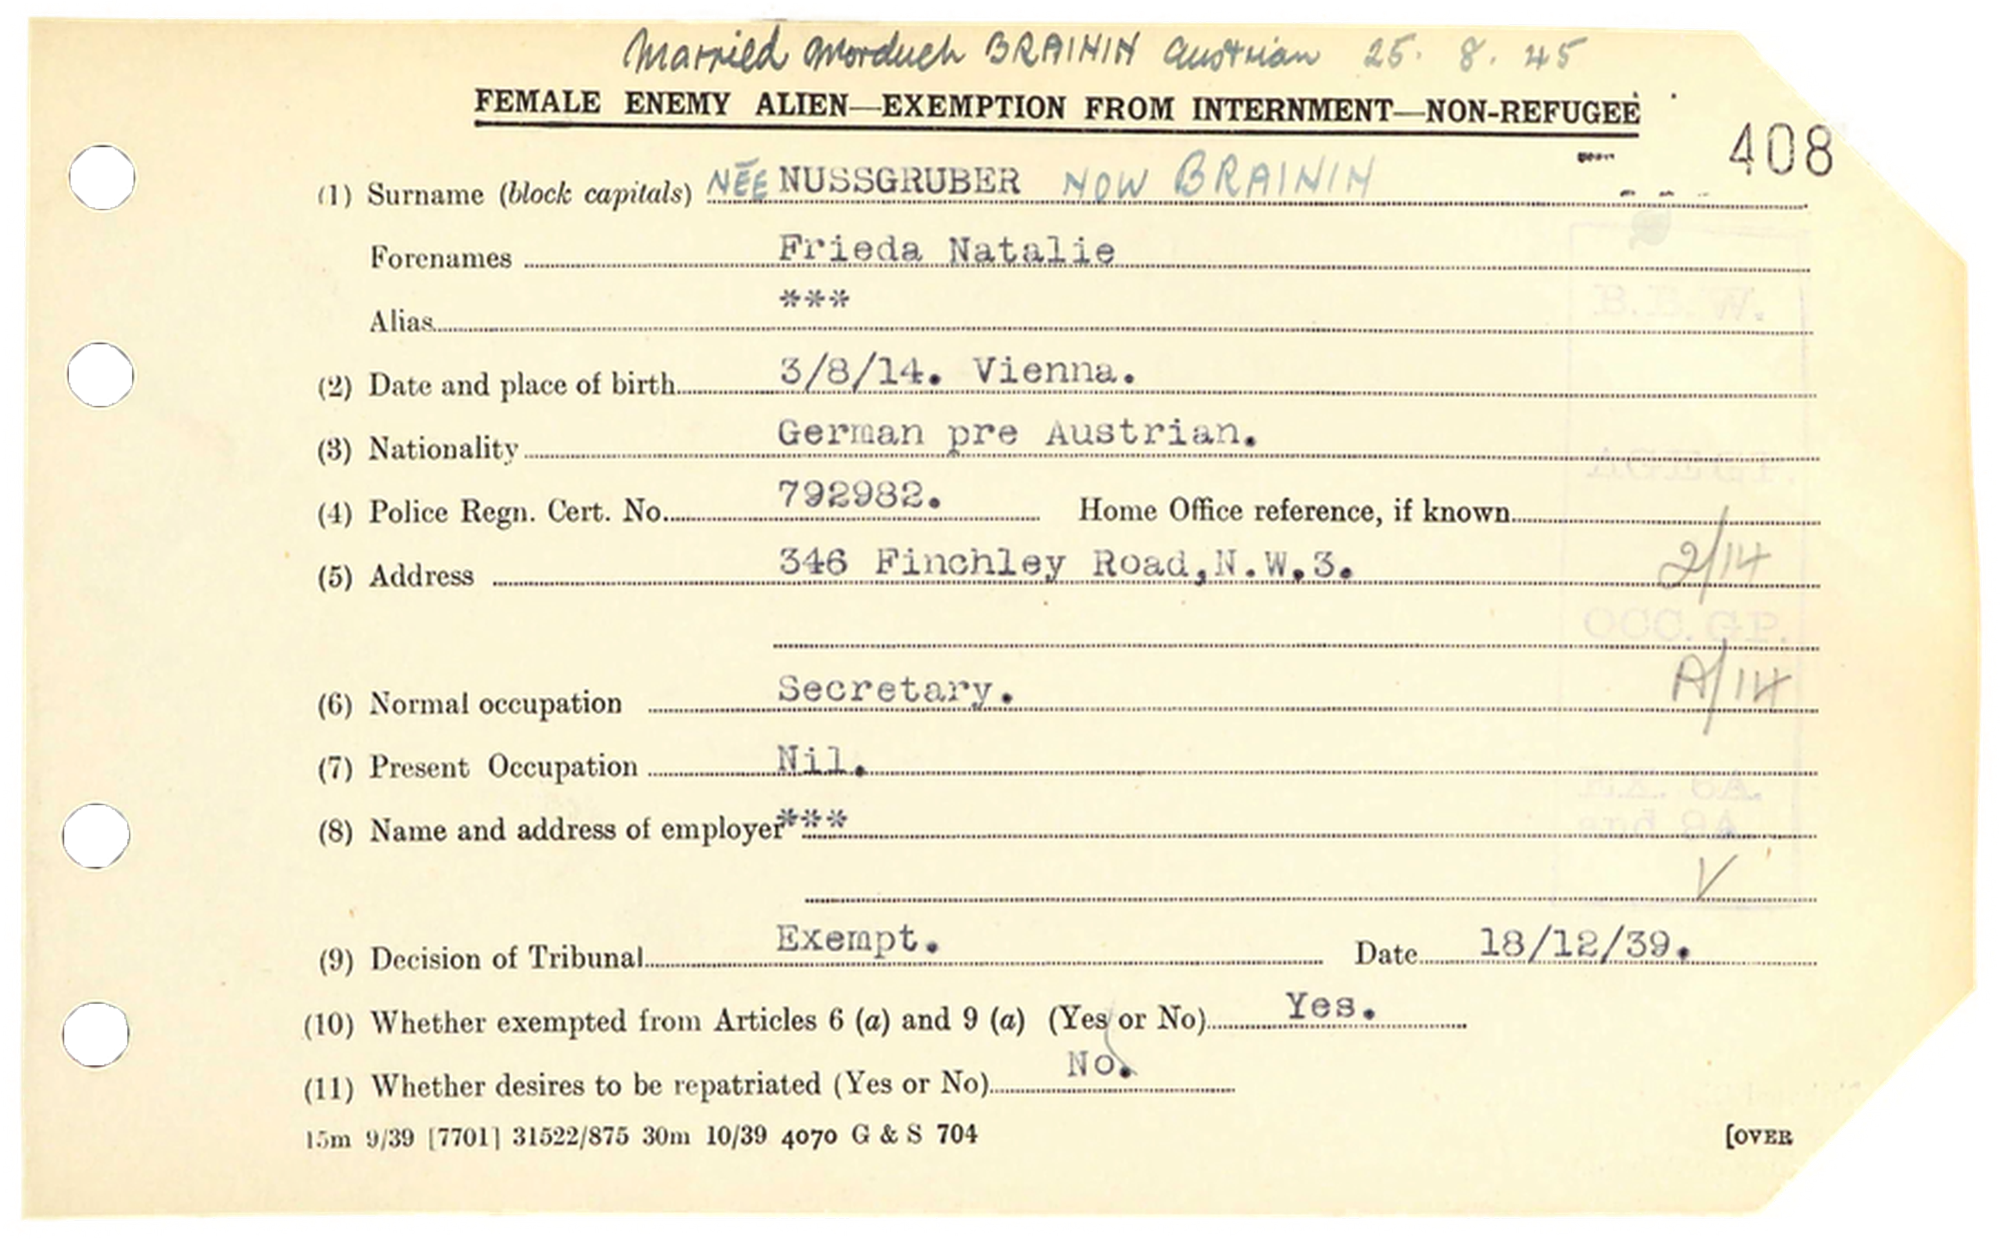 Married Morduch BRAININ Austrian 25. 8. 45
FEMALE ENEMY ALIEN—EXEMPTION FROM INTERNMENT—NON-REFUGEE
408
(1) Surname (block capitals) NÉE NUSSGRUBER NOW BRAININ
Forenames Frieda Natalie
Alias ***
B.B.W.
(2) Date and place of birth 3/8/14. Vienna.
(3) Nationality German pre Austrian.
AGE GP.
(4) Police Regn. Cert. No. 792982. Home Office reference, if known
(5) Address 346 Finchley Road, N.W.3.
2/14
OCC. GP.
(6) Normal occupation Secretary.
A/14
(7) Present Occupation Nil.
EX. 6A.
and 9A.
(8) Name and address of employer ***
(9) Decision of Tribunal Exempt. Date 18/12/39.
(10) Whether exempted from Articles 6 (a) and 9 (a) (Yes or No) Yes.
(11) Whether desires to be repatriated (Yes or No) No.
15m 9/39 [7701] 31522/875 30m 10/39 4070 G & S 704
[OVER